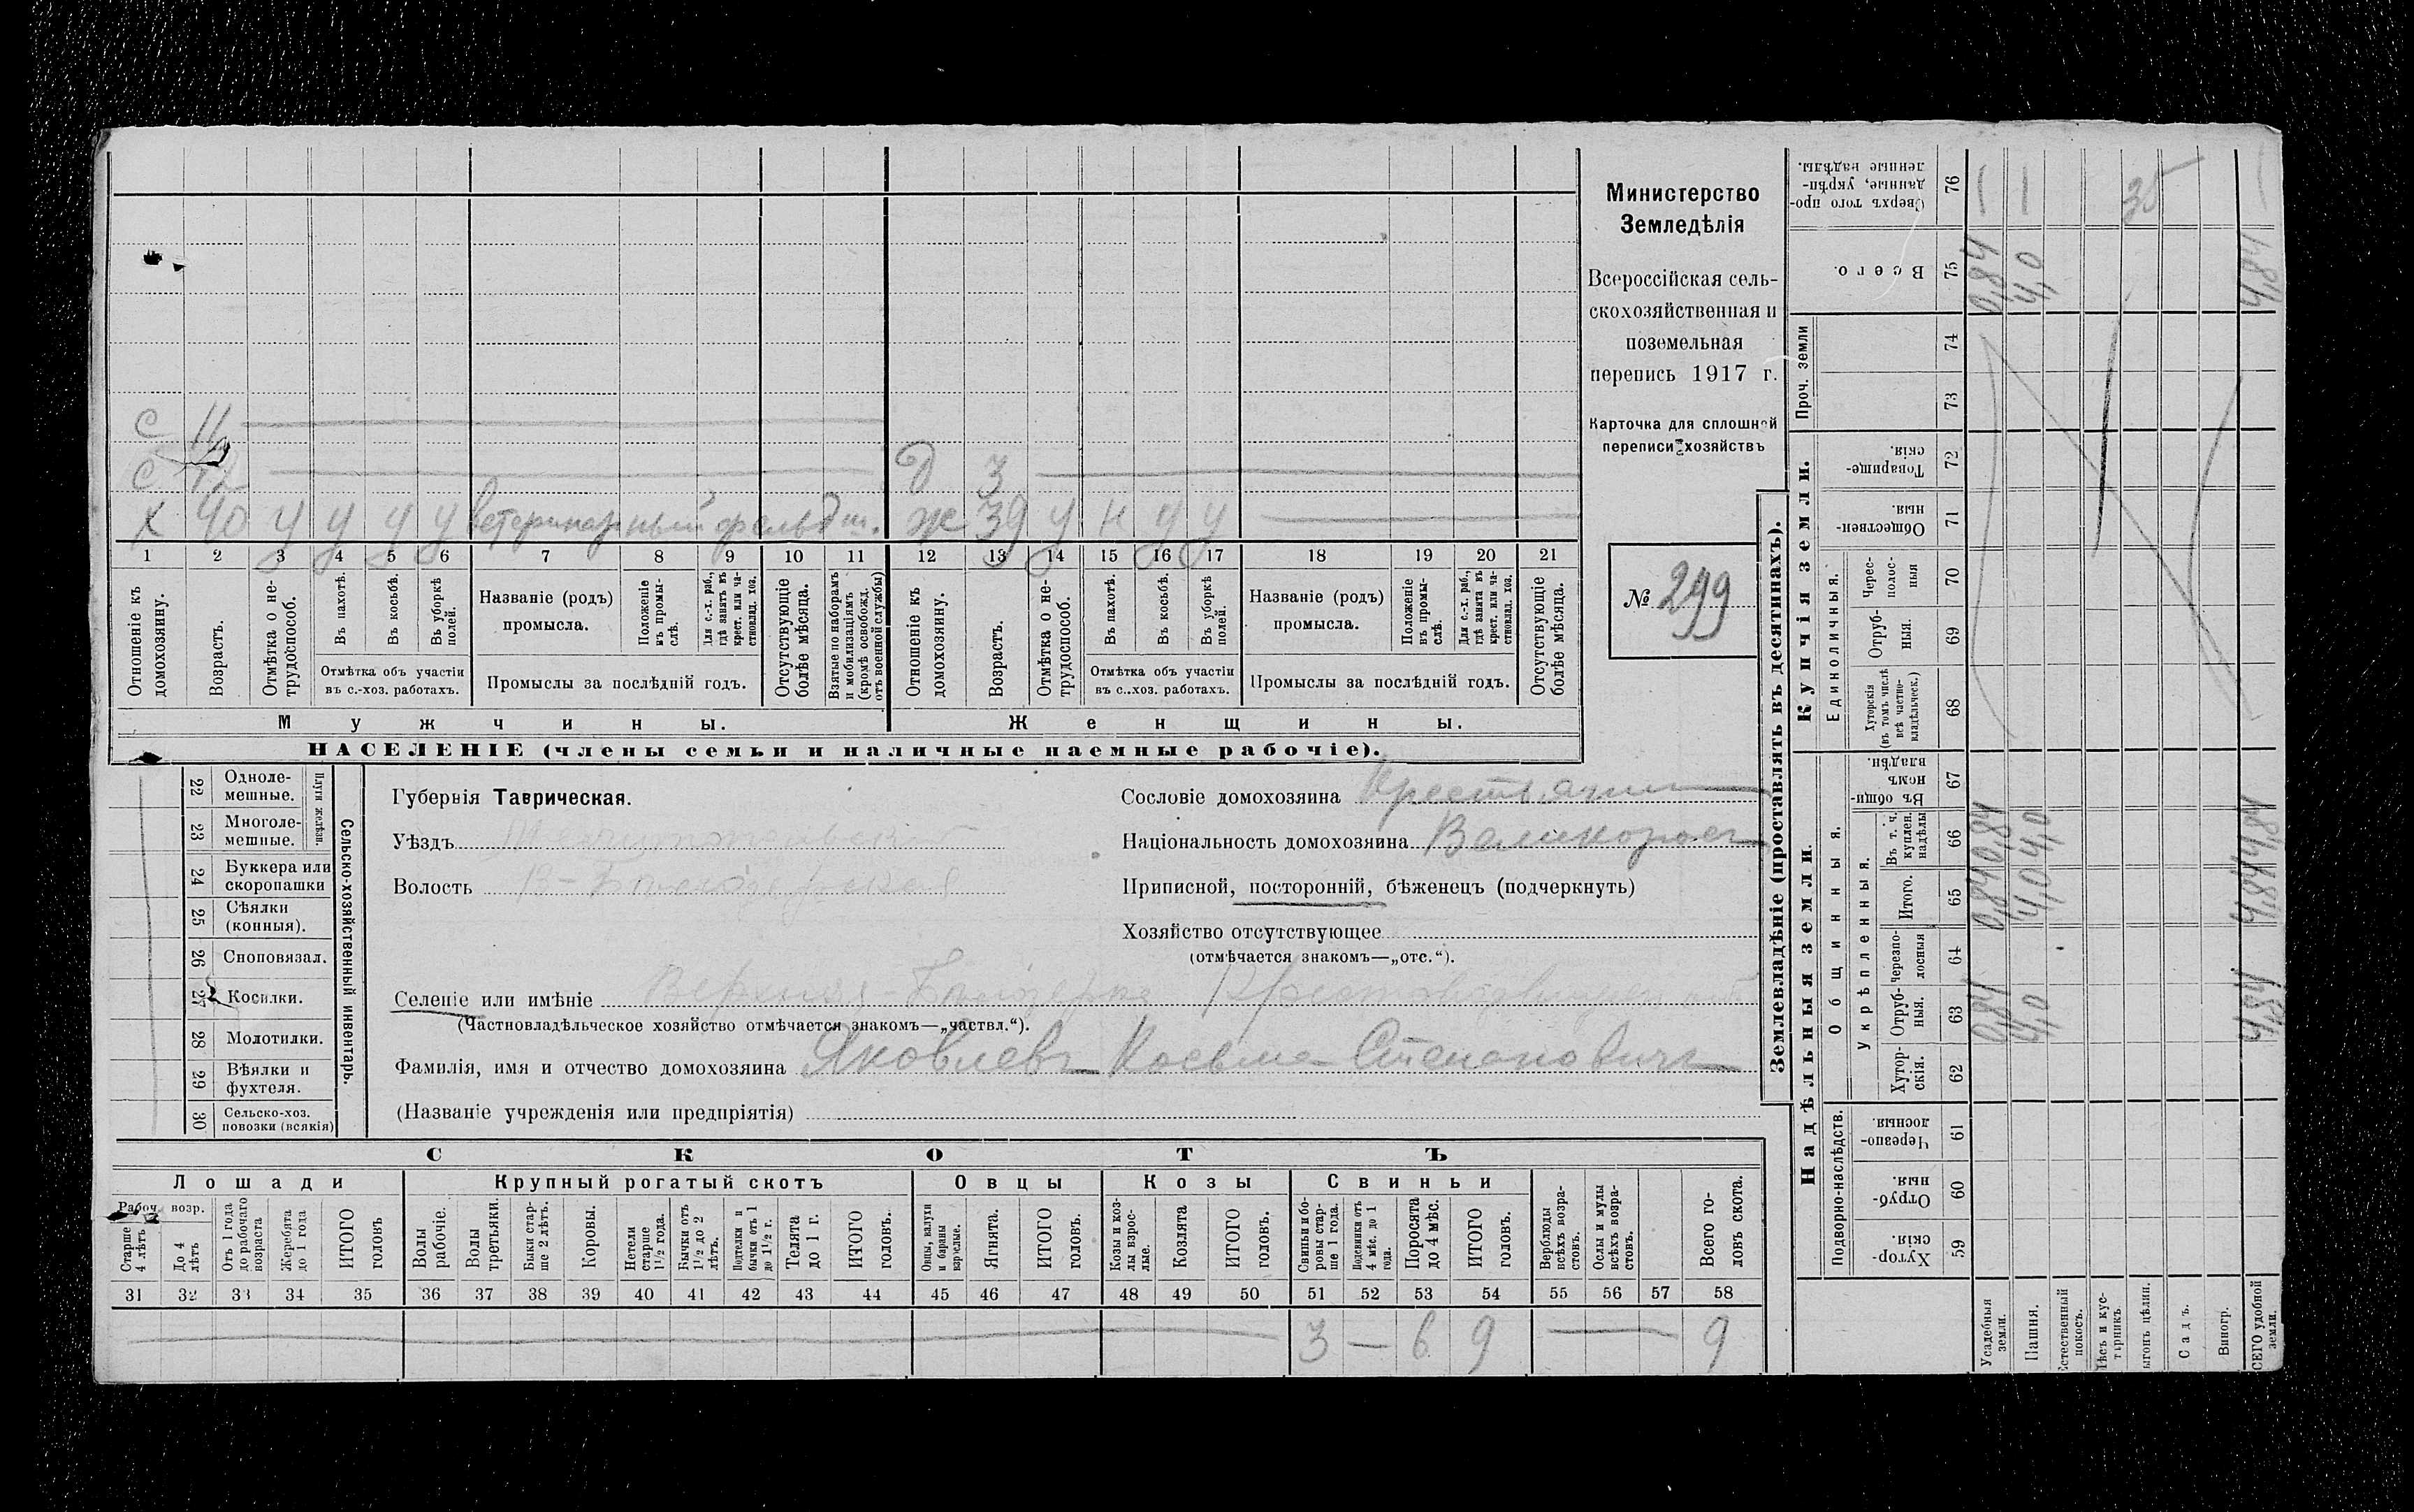 С 11
С 12 Д 3
Х 40 у у у у ветеринарный фельдш. ж 39 у н у у
1 2 3 4 5 6 7 8 9 10 11 12 13 14 15 16 17 18 19 20 21
Отношеніе къ домохозяину.
Возрастъ.
Отмѣтка о нетрудоспособ.
Въ пахотѣ.
Въ косьбѣ.
Въ уборкѣ полей.
Отмѣтка объ участіи
въ с.-хоз. работахъ.
Названіе (родъ)
промысла.
Положеніе въ промыслѣ.
Для с.-х. раб., гдѣ занятъ въ крест. или частновлад. хоз.
Промыслы за послѣдній годъ.
Отсутствующіе болѣе мѣсяца.
Взятые по наборамъ и мобилизаціямъ (кромѣ освобожд. отъ военной службы)
Отношеніе къ домохозяину.
Возрастъ.
Отмѣтка о нетрудоспособ.
Въ пахотѣ.
Въ косьбѣ.
Въ уборкѣ полей.
Отмѣтка объ участіи
въ с..хоз. работахъ.
Названіе (родъ)
промысла.
Положеніе въ промыслѣ.
Для с.-х. раб., гдѣ занята въ крест. или частновлал. хоз.
Промыслы за послѣдній годъ.
Отсутствующіе болѣе мѣсяца.
Мужчины. Женщины.
НАСЕЛЕНІЕ (члены семьи и наличные наемные рабочіе).
Министерство
Земледѣлія
Всероссійская сель-
скохозяйственная и
поземельная
перепись 1917 г.
Карточка для сплошной
переписи хозяйствъ
№ 299
22 Одноле-
мешные.
23 Многоле-
мешные.
Плуги желѣзн.
24 Буккера или
скоропашки
25 Сѣялки
(конныя).
26 Сноповязал.
27 Косилки.
28 Молотилки.
29 Вѣялки и
фухтеля.
30 Сельско-хоз.
повозки (всякія)
Сельско-хозяйственный инвентарь.
Губернія Таврическая.
Уѣздъ Мелитопольскій
Волость
Сословіе домохозяина Крестьянин
Національность домохозяина Великоросъ
Приписной, посторонній, бѣженецъ (подчеркнуть)
Хозяйство отсутствующее
(отмѣчается знакомъ—„отс.“).
Селеніе или имѣніе Верхняя
(Частновладѣльческое хозяйство отмѣчается знакомъ—„частвл.“).
Фамилія, имя и отчество домохозяина Яковлевъ Косьма Степановичъ
(Названіе учрежденія или предпріятія)
СКОТЪ
Лошади Крупный рогатый скотъ Овцы Козы Свиньи
Рабоч. возр.
Старше 4 лѣтъ
До 4 лѣтъ
Отъ 1 года до рабочаго возраста
Жеребята до 1 года
ИТОГО головъ
Волы рабочіе.
Волы третьяки.
Быки старше 2 лѣтъ.
Коровы.
Нетели старше 1½ года.
Бычки отъ 1½ до 2 лѣтъ.
Подтелки и бычки отъ 1 до 1½ г.
Телята до 1 г.
ИТОГО головъ.
Овцы, валухи и бараны взрослые.
Ягнята.
ИТОГО головъ.
Козы и козлы взрослые.
Козлята
ИТОГО головъ.
Свиньи и боровы старше 1 года.
Подсвинки отъ 4 мѣс. до 1 года.
Поросята до 4 мѣс.
ИТОГО головъ.
Верблюды всѣхъ возрастовъ.
Ослы и мулы всѣхъ возрастовъ.
Всего головъ скота.
31 32 33 34 35 36 37 38 39 40 41 42 43 44 45 46 47 48 49 50 51 52 53 54 55 56 57 58
3 — 6 9 — 9
Землевладѣніе (проставлять въ десятинахъ).
Надѣльныя земли. Купчія земли. Проч. земли
Подворно-наслѣдств.
Общинныя.
Укрѣпленныя.
Единоличныя.
Хуторскія. 59
Отрубныя. 60
Черезполосныя. 61
Хуторскія. 62
Отрубныя. 63
Черезполосныя 64
Итого. 65
Въ т. ч. куплен. надѣлы 66
Въ общинномъ владѣн. 67
Хуторскія (въ томъ числѣ всѣ частновладѣльческ.) 68
Отрубныя. 69
Чересполосныя 70
Общественныя. 71
Товарищескія. 72
73
74
Всего. 75
Сверхъ того проданные, укрѣпленные надѣлы. 76
Усадебныя земли. 0,84 0,84 0,84 0,84
Пашня. 4,0 4,0 4,0 4,0
Естественный покосъ.
Лѣсъ и кустарникъ
Выгонъ цѣлин. 35
Садъ.
Виногр.
ВСЕГО удобной земли. 4,84 4,84 4,84 4,84